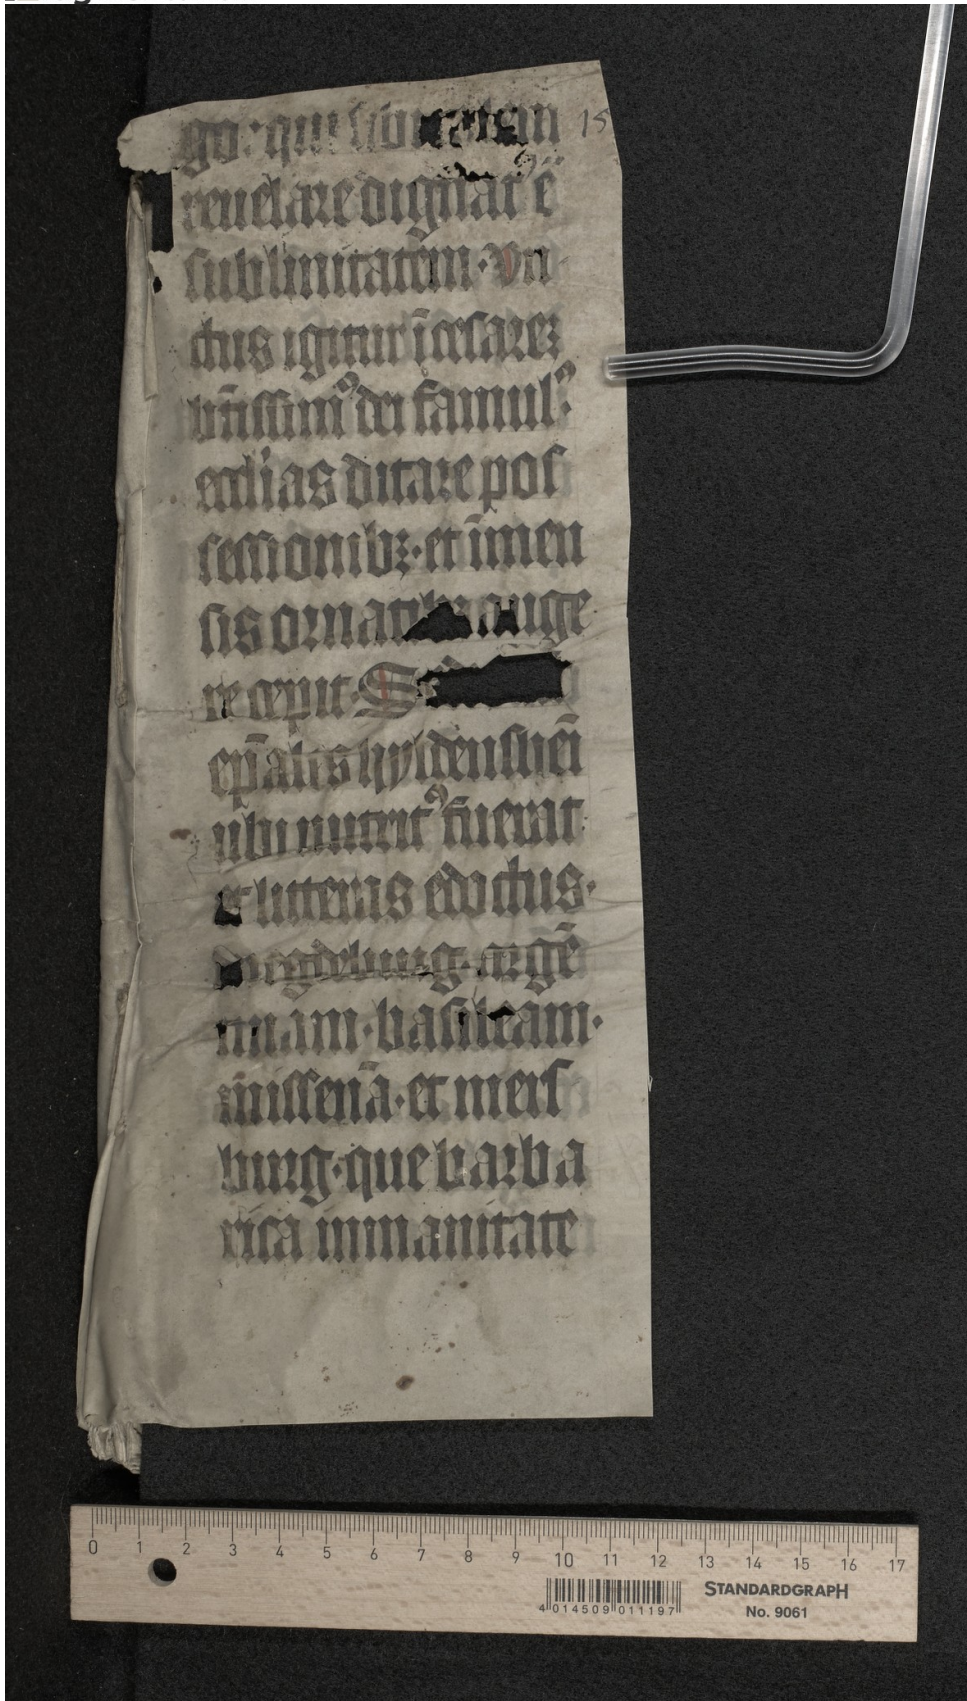 15
go· qui
reuelare dignatꝰ ē
sublimitatem· Vn
ctus igitur ī cesarēꝫ
bt̄issimꝰ dei famulꝰ·
eccl̄ias ditare pos
sessionibꝫ· et īmen
sis ornatibꝫ auge
re cepit· S
ep̄ales hyldensheī
ubi nutritꝰ fuerat
et litteras edoctus·
magdeburg· argē
tinam· basileam·
missenā· et mers
burg· que barba
rica inmanitate
0 1 2 3 4 5 6 7 8 9 10 11 12 13 14 15 16 17
4 014509 011197
STANDARDGRAPH
No. 9061